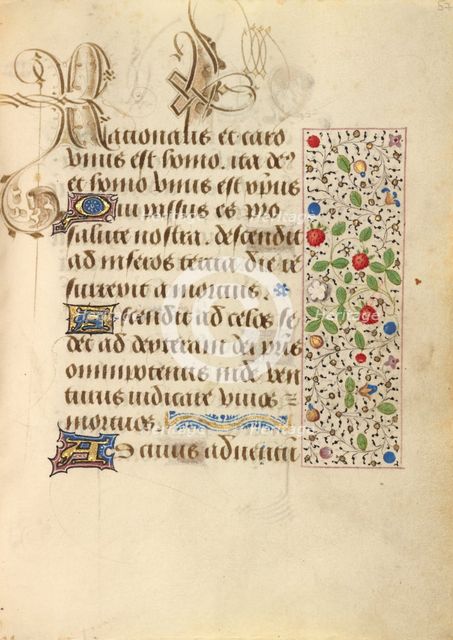 57
Racionalis et caro
vnus est homo. ita deꝰ
et homo vnus est xp̄us
Qui passus es pro
salute nostra. descendit
ad inferos tercia die re
surrexit a mortuis.
Ascendit ad celos se
det ad dexteram dei pr̄is
omnipotentis inde ven
turus iudicare viuos ⁊
mortuos
Ad cuius aduentū
Heritage